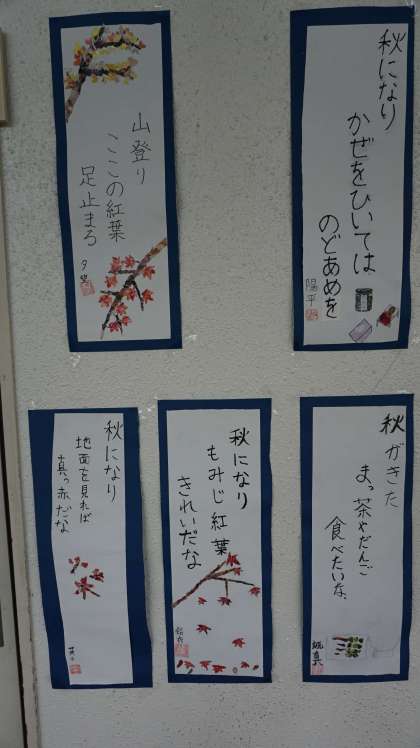 秋になり
かぜをひいては
のどあめを
陽平
山登り
ここの紅葉
足止まろ
秋がきた
まっ茶やだんご
食べたいな、
秋になり
もみじ紅葉
きれいだな
秋になり
地面を見れば
真っ赤だな